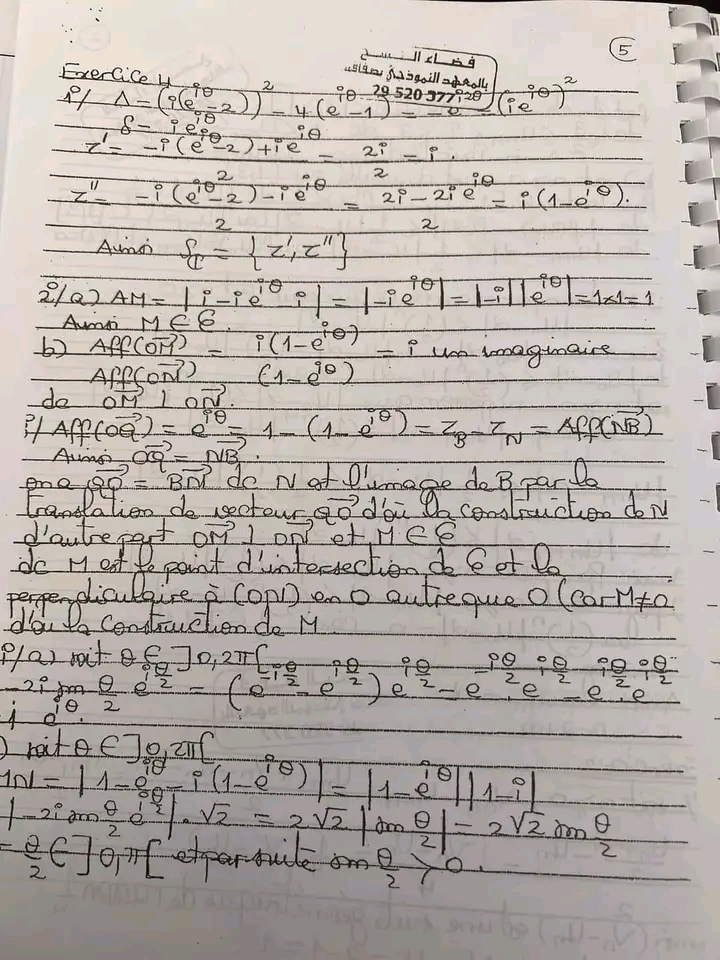 5
فضاء النسخ
بالمعهد النموذجي بصفاقس
29 520 377
Exercice 4
1°/ Δ = (i(e^{iθ}-2))² - 4(e^{iθ}-1) = -e^{i2θ} = (ie^{iθ})²
δ = ie^{iθ}
z' = (-i(e^{iθ}-2)+ie^{iθ})/2 = 2i/2 = i.
z'' = (-i(e^{iθ}-2)-ie^{iθ})/2 = (2i-2ie^{iθ})/2 = i(1-e^{iθ}).
Ainsi S_ℂ = {z', z''}
2°/a) AM = |i-ie^{iθ}-i| = |-ie^{iθ}| = |-i||e^{iθ}| = 1x1 = 1
Ainsi M ∈ C.
b) Aff(OM→)/Aff(ON→) = i(1-e^{iθ})/(1-e^{iθ}) = i un imaginaire
dc OM→ ⊥ ON→.
i/ Aff(OQ→) = e^{iθ} = 1-(1-e^{iθ}) = z_B - z_N = Aff(NB→)
Ainsi OQ→ = NB→.
on a QO→ = BN→ dc N est l'image de B par la
translation de vecteur QO→ d'où la construction de N
d'autre part OM→ ⊥ ON→ et M ∈ C
dc M est le point d'intersection de C et la
perpendiculaire à (ON) en O autre que O (car M≠O
d'où la construction de M
i/a) soit θ ∈ ]0,2π[
-2i sin θ/2 e^{iθ/2} = (e^{-iθ/2} - e^{iθ/2}) e^{iθ/2} = e^{-iθ/2} e^{iθ/2} - e^{iθ/2} e^{iθ/2} =
1 - e^{iθ}.
) soit θ ∈ ]0,2π[
MN = |1-e^{iθ} - i(1-e^{iθ})| = |1-e^{iθ}||1-i|
|-2i sin θ/2 e^{iθ/2}|.√2 = 2√2 |sin θ/2| = 2√2 sin θ/2
= θ/2 ∈ ]0,π[ et par suite sin θ/2 > 0.